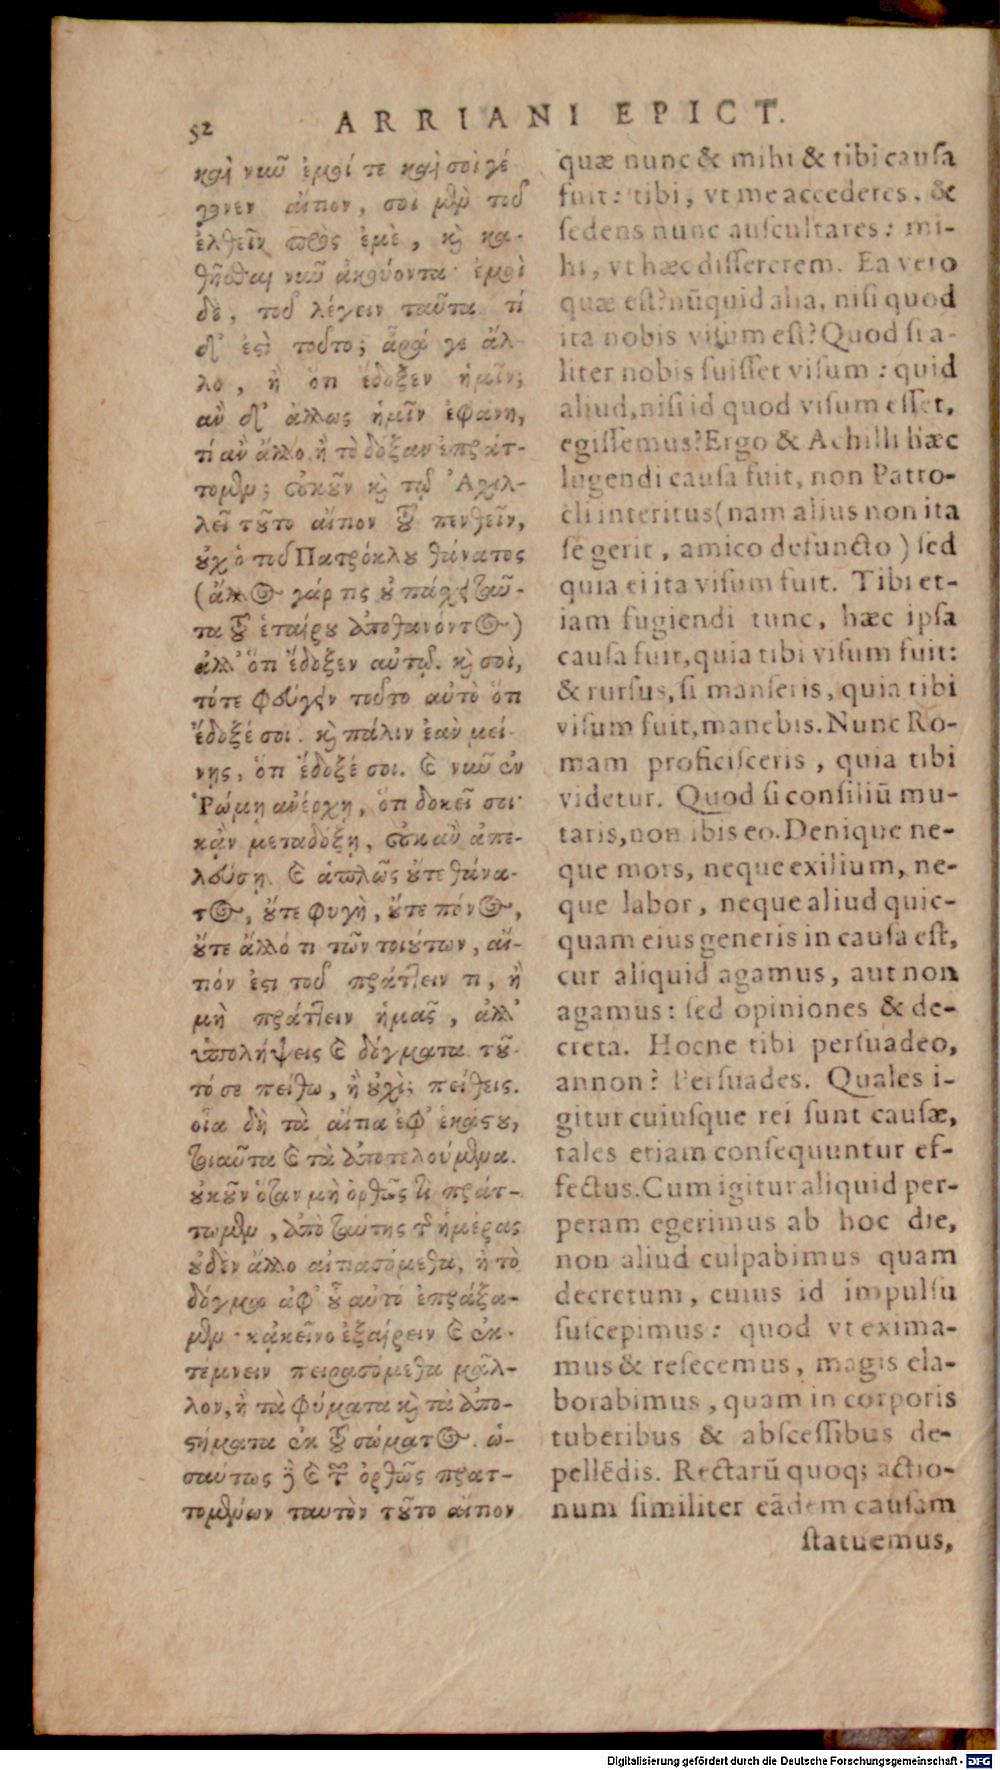 52
ARRIANI EPICT.
καὶ νῦν ἐμοί τε καὶ σοὶ γέ-
γονεν αἴτιον, σοὶ μὲν τοῦ
ἐλθεῖν πρὸς ἐμὲ, καὶ κα-
θῆσθαι νῦν ἀκούοντα· ἐμοὶ
δὲ, τοῦ λέγειν ταῦτα τί
δ' ἐςὶ τοῦτο; ἆρά γε ἄλ-
λο, ἢ ὅτι ἔδοξεν ἡμῖν;
ἂν δ' ἄλλως ἡμῖν ἐφάνη,
τί ἂν ἄλλο ἢ τὸ δόξαν ἐπράτ-
τομεν; οὐκοῦν καὶ τῷ Ἀχιλ-
λεῖ τοῦτο αἴτιον τοῦ πενθεῖν,
οὐχ ὁ τοῦ Πατρόκλου θάνατος
(ἄλλος γάρ τις οὐ πάσχει ταῦ-
τα τοῦ ἑταίρου ἀποθανόντος)
ἀλλ' ὅτι ἔδοξεν αὐτῷ. καὶ σοὶ,
τότε φεύγειν τοῦτο αὐτὸ ὅτι
ἔδοξέ σοι. καὶ πάλιν ἐὰν μεί-
νης, ὅτι ἔδοξέ σοι. καὶ νῦν ἐν
Ῥώμη ἀνέρχη, ὅτι δοκεῖ σοι·
κἂν μεταδόξη, οὐκ ἂν ἀπε-
λεύση. καὶ ἁπλῶς οὔτε θάνα-
τος, οὔτε φυγὴ, οὔτε πόνος,
οὔτε ἄλλό τι τῶν τοιούτων, αἴ-
τιόν ἐςι τοῦ πράττειν τι, ἢ
μὴ πράττειν ἡμᾶς, ἀλλ'
ὑπολήψεις καὶ δόγματα. τοῦ-
τό σε πείθω, ἢ οὐχί; πείθεις.
οἷα δὴ τὰ αἴτια ἐφ' ἑκάςου,
τοιαῦτα καὶ τὰ ἀποτελούμενα.
οὐκοῦν ὅταν μὴ ὀρθῶς τι πράτ-
τωμεν, ἀπὸ ταύτης τῆς ἡμέρας
οὐδὲν ἄλλο αἰτιασόμεθα, ἢ τὸ
δόγμα ἀφ' οὗ αὐτὸ ἐπράξα-
μεν· κἀκεῖνο ἐξαίρειν καὶ ἐκ-
τέμνειν πειρασόμεθα μᾶλ-
λον, ἢ τὰ φύματα καὶ τὰ ἀπο-
ςήματα ἐκ τοῦ σώματος. ὡ-
σαύτως δὲ καὶ τῶν ὀρθῶς πρατ-
τομένων ταυτὸν τοῦτο αἴτιον
quæ nunc & mihi & tibi causa
fuit: tibi, vt me accederes, &
sedens nunc auscultares: mi-
hi, vt hæc dissererem. Ea vero
quæ est? nūquid alia, nisi quod
ita nobis visum est? Quod si a-
liter nobis fuisset visum: quid
aliud, nisi id quod visum esset,
egissemus? Ergo & Achilli hæc
lugendi causa fuit, non Patro-
cli interitus (nam alius non ita
se gerit, amico defuncto) sed
quia ei ita visum fuit. Tibi et-
iam fugiendi tunc, hæc ipsa
causa fuit, quia tibi visum fuit:
& rursus, si manseris, quia tibi
visum fuit, manebis. Nunc Ro-
mam proficisceris, quia tibi
videtur. Quod si consiliū mu-
taris, non ibis eo. Denique ne-
que mors, neque exilium, ne-
que labor, neque aliud quic-
quam eius generis in causa est,
cur aliquid agamus, aut non
agamus: sed opiniones & de-
creta. Hocne tibi persuadeo,
annon? Persuades. Quales i-
gitur cuiusque rei sunt causæ,
tales etiam consequuntur ef-
fectus. Cum igitur aliquid per-
peram egerimus ab hoc die,
non aliud culpabimus quam
decretum, cuius id impulsu
suscepimus: quod vt exima-
mus & resecemus, magis ela-
borabimus, quam in corporis
tuberibus & abscessibus de-
pellēdis. Rectarū quoq; actio-
num similiter eādem causam
statuemus,
Digitalisierung gefördert durch die Deutsche Forschungsgemeinschaft - DFG